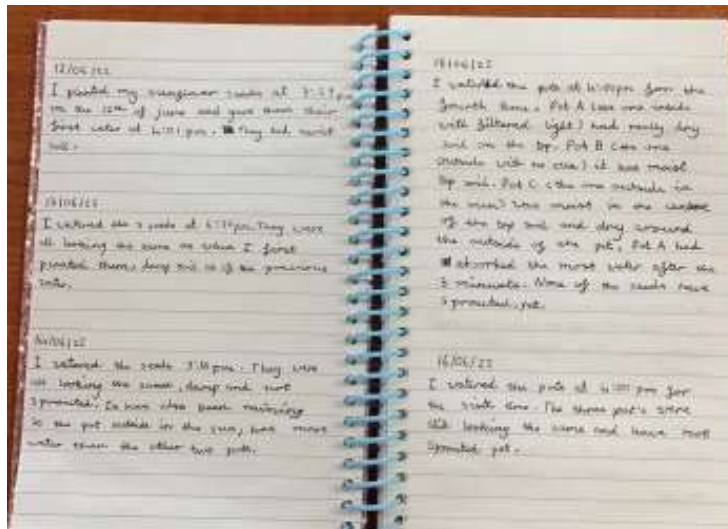 12/06/22
I planted my sunflower seeds at 3:57pm
on the 12th of june and gave them their
first water at 4:01 pm. They had moist
soil.
13/06/22
I watered the 3 seeds at pm. They were
all looking the same as when I first
planted them, damp soil as if the previous
water.
14/06/22
I watered the seeds pm. They were
all looking the same, damp and not
sprouted. It has also been raining
so the pot outside in the sun, has more
water than the other two pots.
15/06/22
I watered the pots at 4:00pm for the
fourth time. Pot A (the one inside
with filtered light) had really dry
soil on the top. Pot B (the one
outside with no sun) it was moist
top soil. Pot C (the one outside in
the sun) was moist in the
of the top soil and dry around
the outside of the pot. Pot A had
absorbed the most water after the
minutes. None of the seeds have
sprouted yet.
16/06/22
I watered the pots at pm for
the time. The three pot's were
still looking the same and have not
sprouted yet.